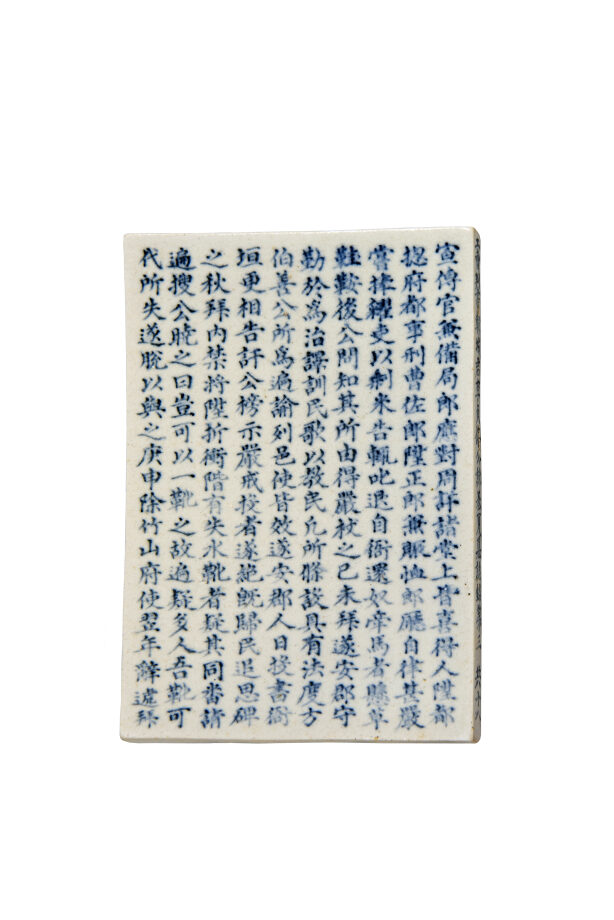 宣傳官兼備局郎應對周詳諸堂上皆喜得人陞都
摠府都事刑曹佐郎陞正郎兼賑恤郎廳自律甚嚴
嘗捧糶吏以剩米告輒叱退自衙還奴牽馬者懸草
鞋鞍後公問知其所由得嚴杖之己未拜遂安郡守
勤於爲治譯訓民歌以敎民凡所條設具有法度方
伯善公所爲遍諭列邑使皆效遂安郡人日投書衙
垣更相告訐公榜示嚴戒投者遂絶旣歸民追思碑
之秋拜內禁將陞折衝階有失水靴者疑其同番請
遍搜公曉之曰豈可以一靴之故遍疑多人吾靴可
代所失遂脫以與之庚申除竹山府使翌年辭遞拜